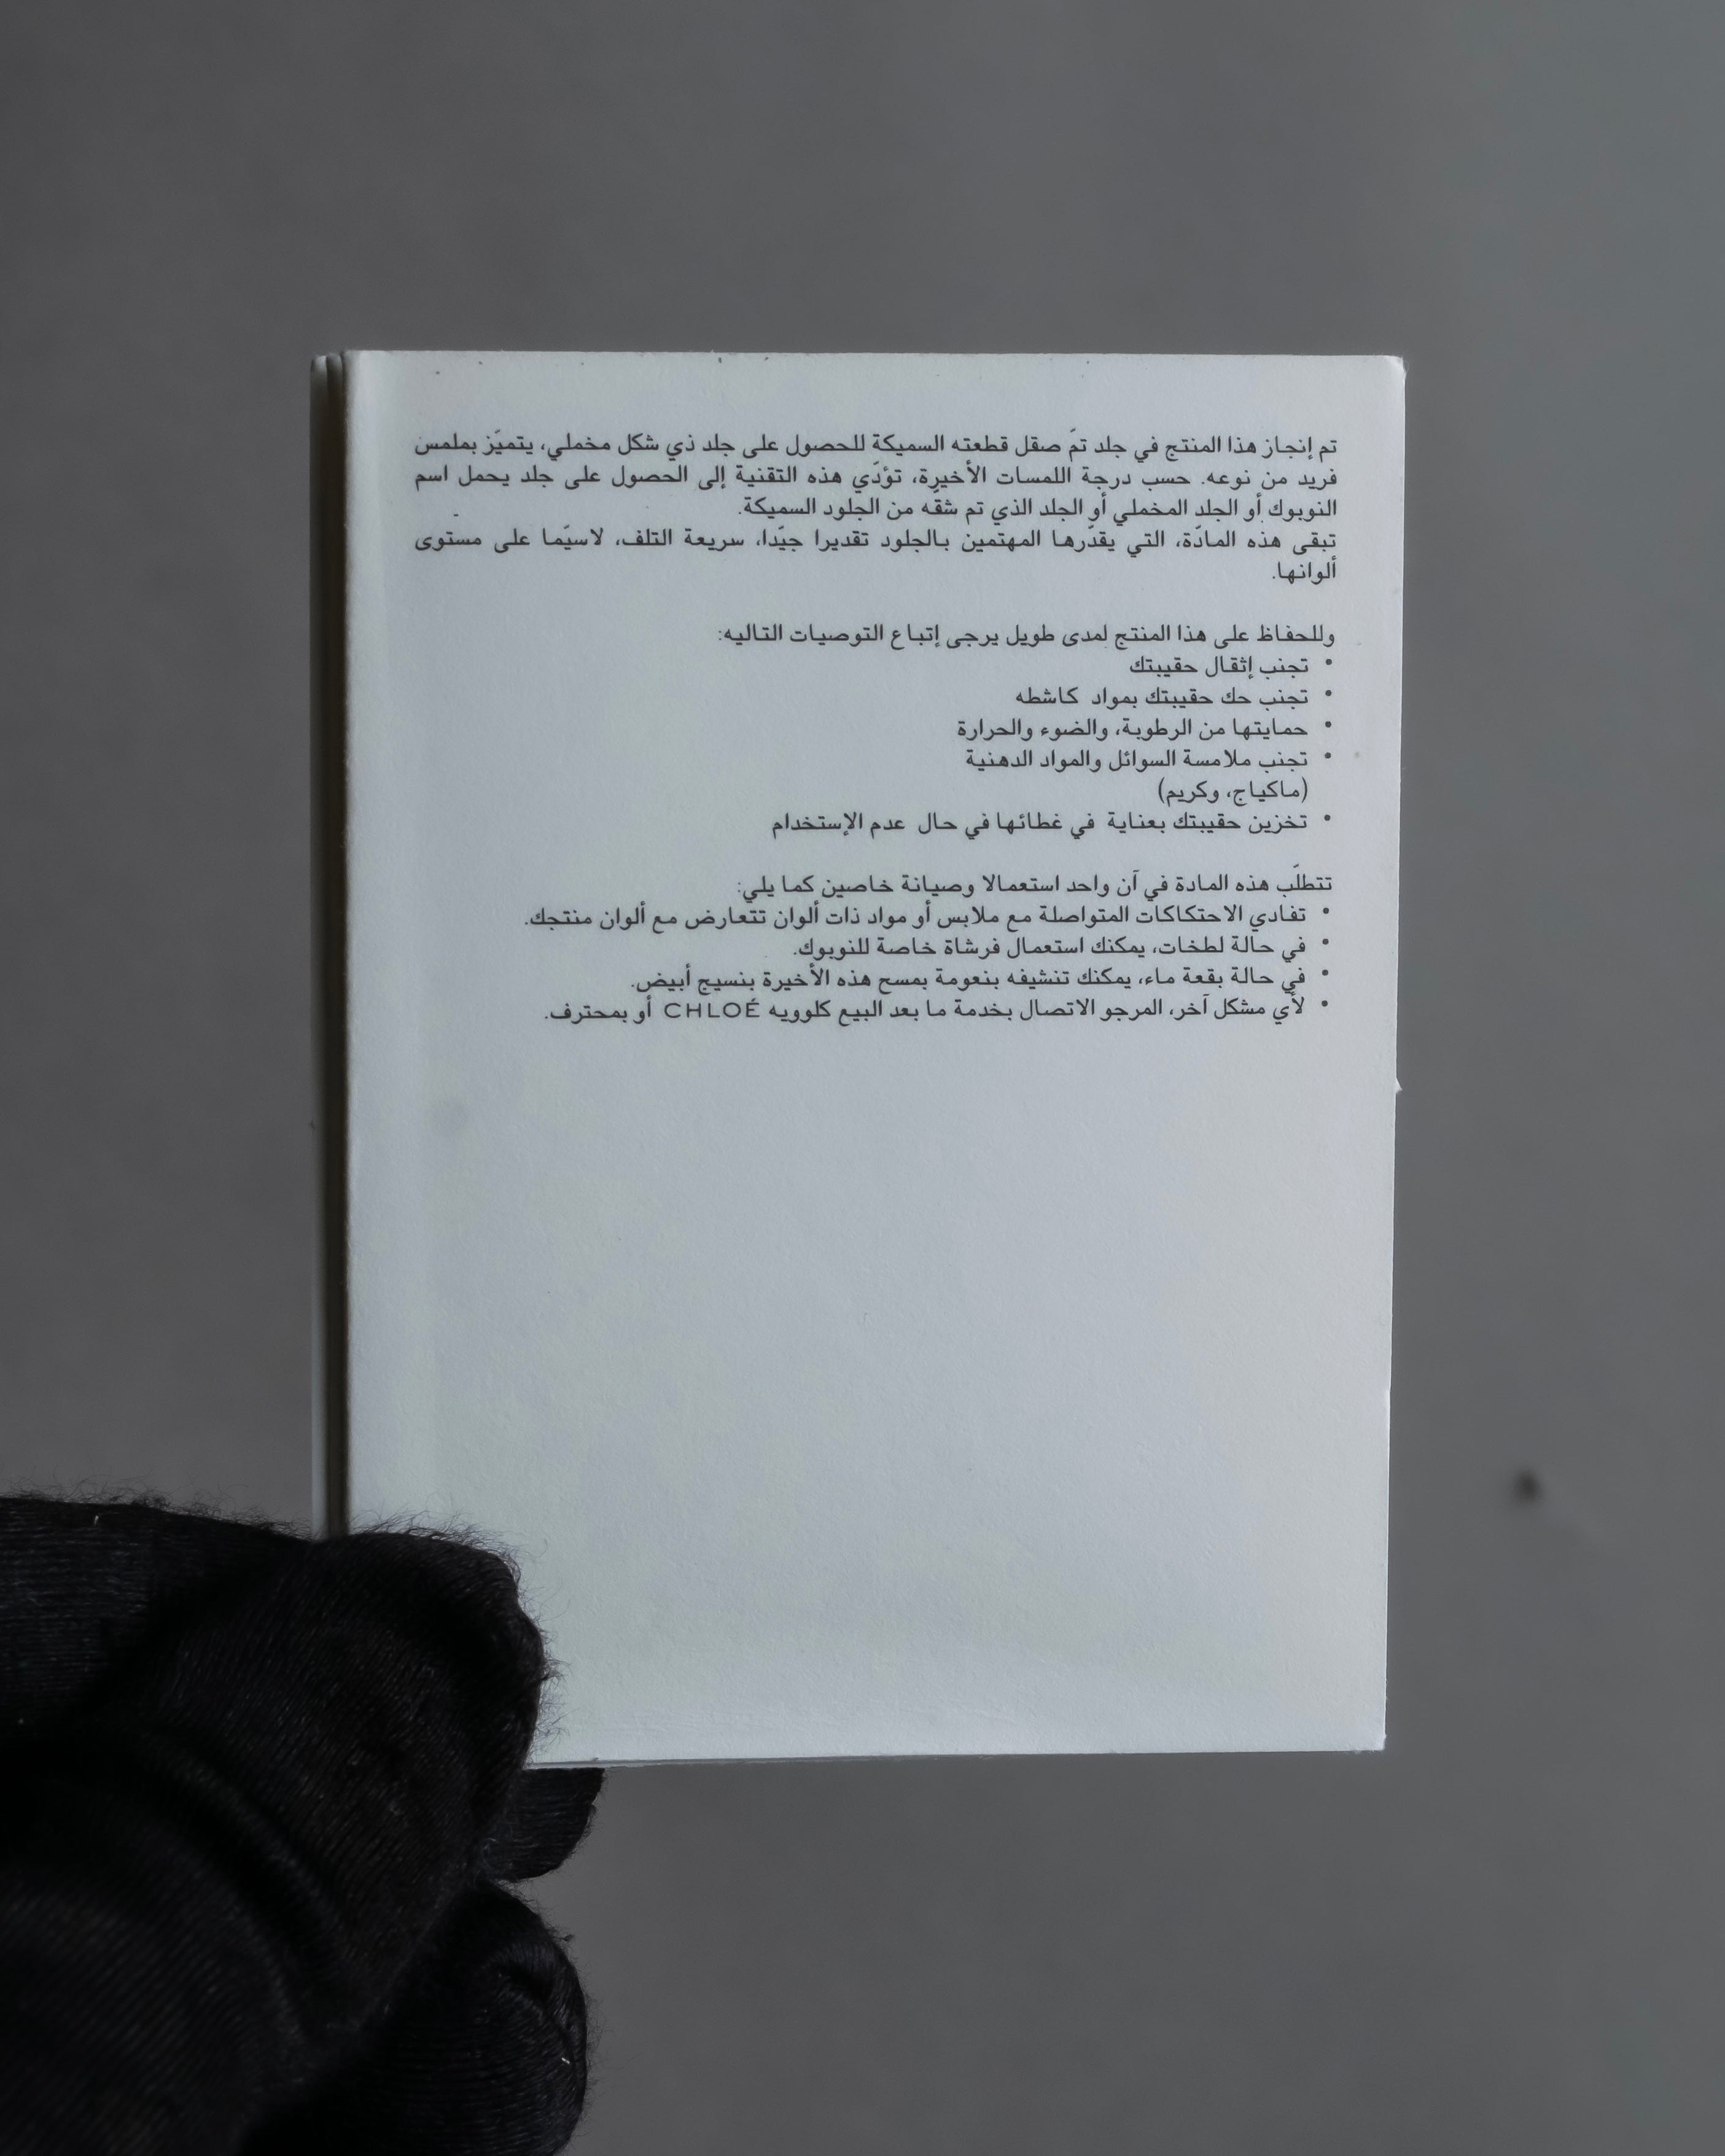 تم إنجاز هذا المنتج في جلد تمّ صقل قطعته السميكة للحصول على جلد ذي شكل مخملي، يتميّز بملمس
فريد من نوعه. حسب درجة اللمسات الأخيرة، تؤدّي هذه التقنية إلى الحصول على جلد يحمل اسم
النوبوك أو الجلد المخملي أو الجلد الذي تم شقّه من الجلود السميكة.
تبقى هذه المادّة، التي يقدّرها المهتمين بالجلود تقديرا جيّدا، سريعة التلف، لاسيّما على مستوى
ألوانها.
وللحفاظ على هذا المنتج لمدى طويل يرجى إتباع التوصيات التاليه:
• تجنب إثقال حقيبتك
• تجنب حك حقيبتك بمواد كاشطه
• حمايتها من الرطوبة، والضوء والحرارة
• تجنب ملامسة السوائل والمواد الدهنية
(ماكياج، وكريم)
• تخزين حقيبتك بعناية في غطائها في حال عدم الإستخدام
تتطلّب هذه المادة في آن واحد استعمالا وصيانة خاصين كما يلي:
• تفادي الاحتكاكات المتواصلة مع ملابس أو مواد ذات ألوان تتعارض مع ألوان منتجك.
• في حالة لطخات، يمكنك استعمال فرشاة خاصة للنوبوك.
• في حالة بقعة ماء، يمكنك تنشيفه بنعومة بمسح هذه الأخيرة بنسيج أبيض.
• لأي مشكل آخر، المرجو الاتصال بخدمة ما بعد البيع كلوويه CHLOÉ أو بمحترف.